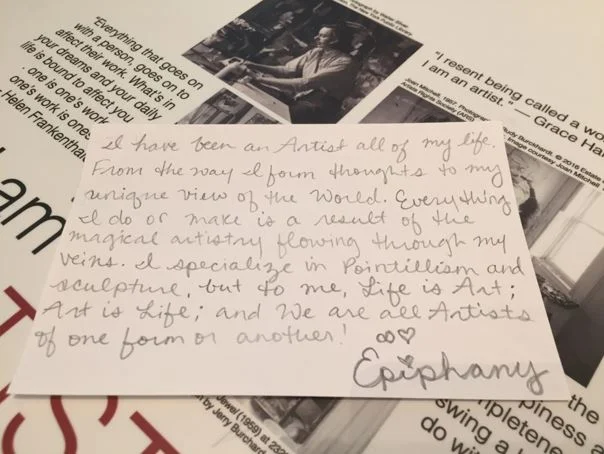 "Everything that goes on
with a person, goes on to
affect their work. What's in
your dreams and your daily
life is bound to affect you
one is one's work
one's work is one's
Helen Frankenthaler
am
The New York Public Library.
"I resent being called a wo
I am an artist." — Grace Ha
Joan Mitchell, 1957. Photograp
Artists Rights Society (ARS)
Rudy Burckhardt. © 2016 Estate
Image courtesy, Joan Mitchell
I have been an Artist all of my life.
From the way I form thoughts to my
unique view of the World. Everything
I do or make is a result of the
magical artistry flowing through my
veins. I specialize in Pointillism and
sculpture, but to me, Life is Art;
Art is Life; and We are all Artists
of one form or another!
∞♡
Epiphany
Jewel (1959) at 232
by Jerry Burchard
the
piness a
mpletene
swing a
do wi